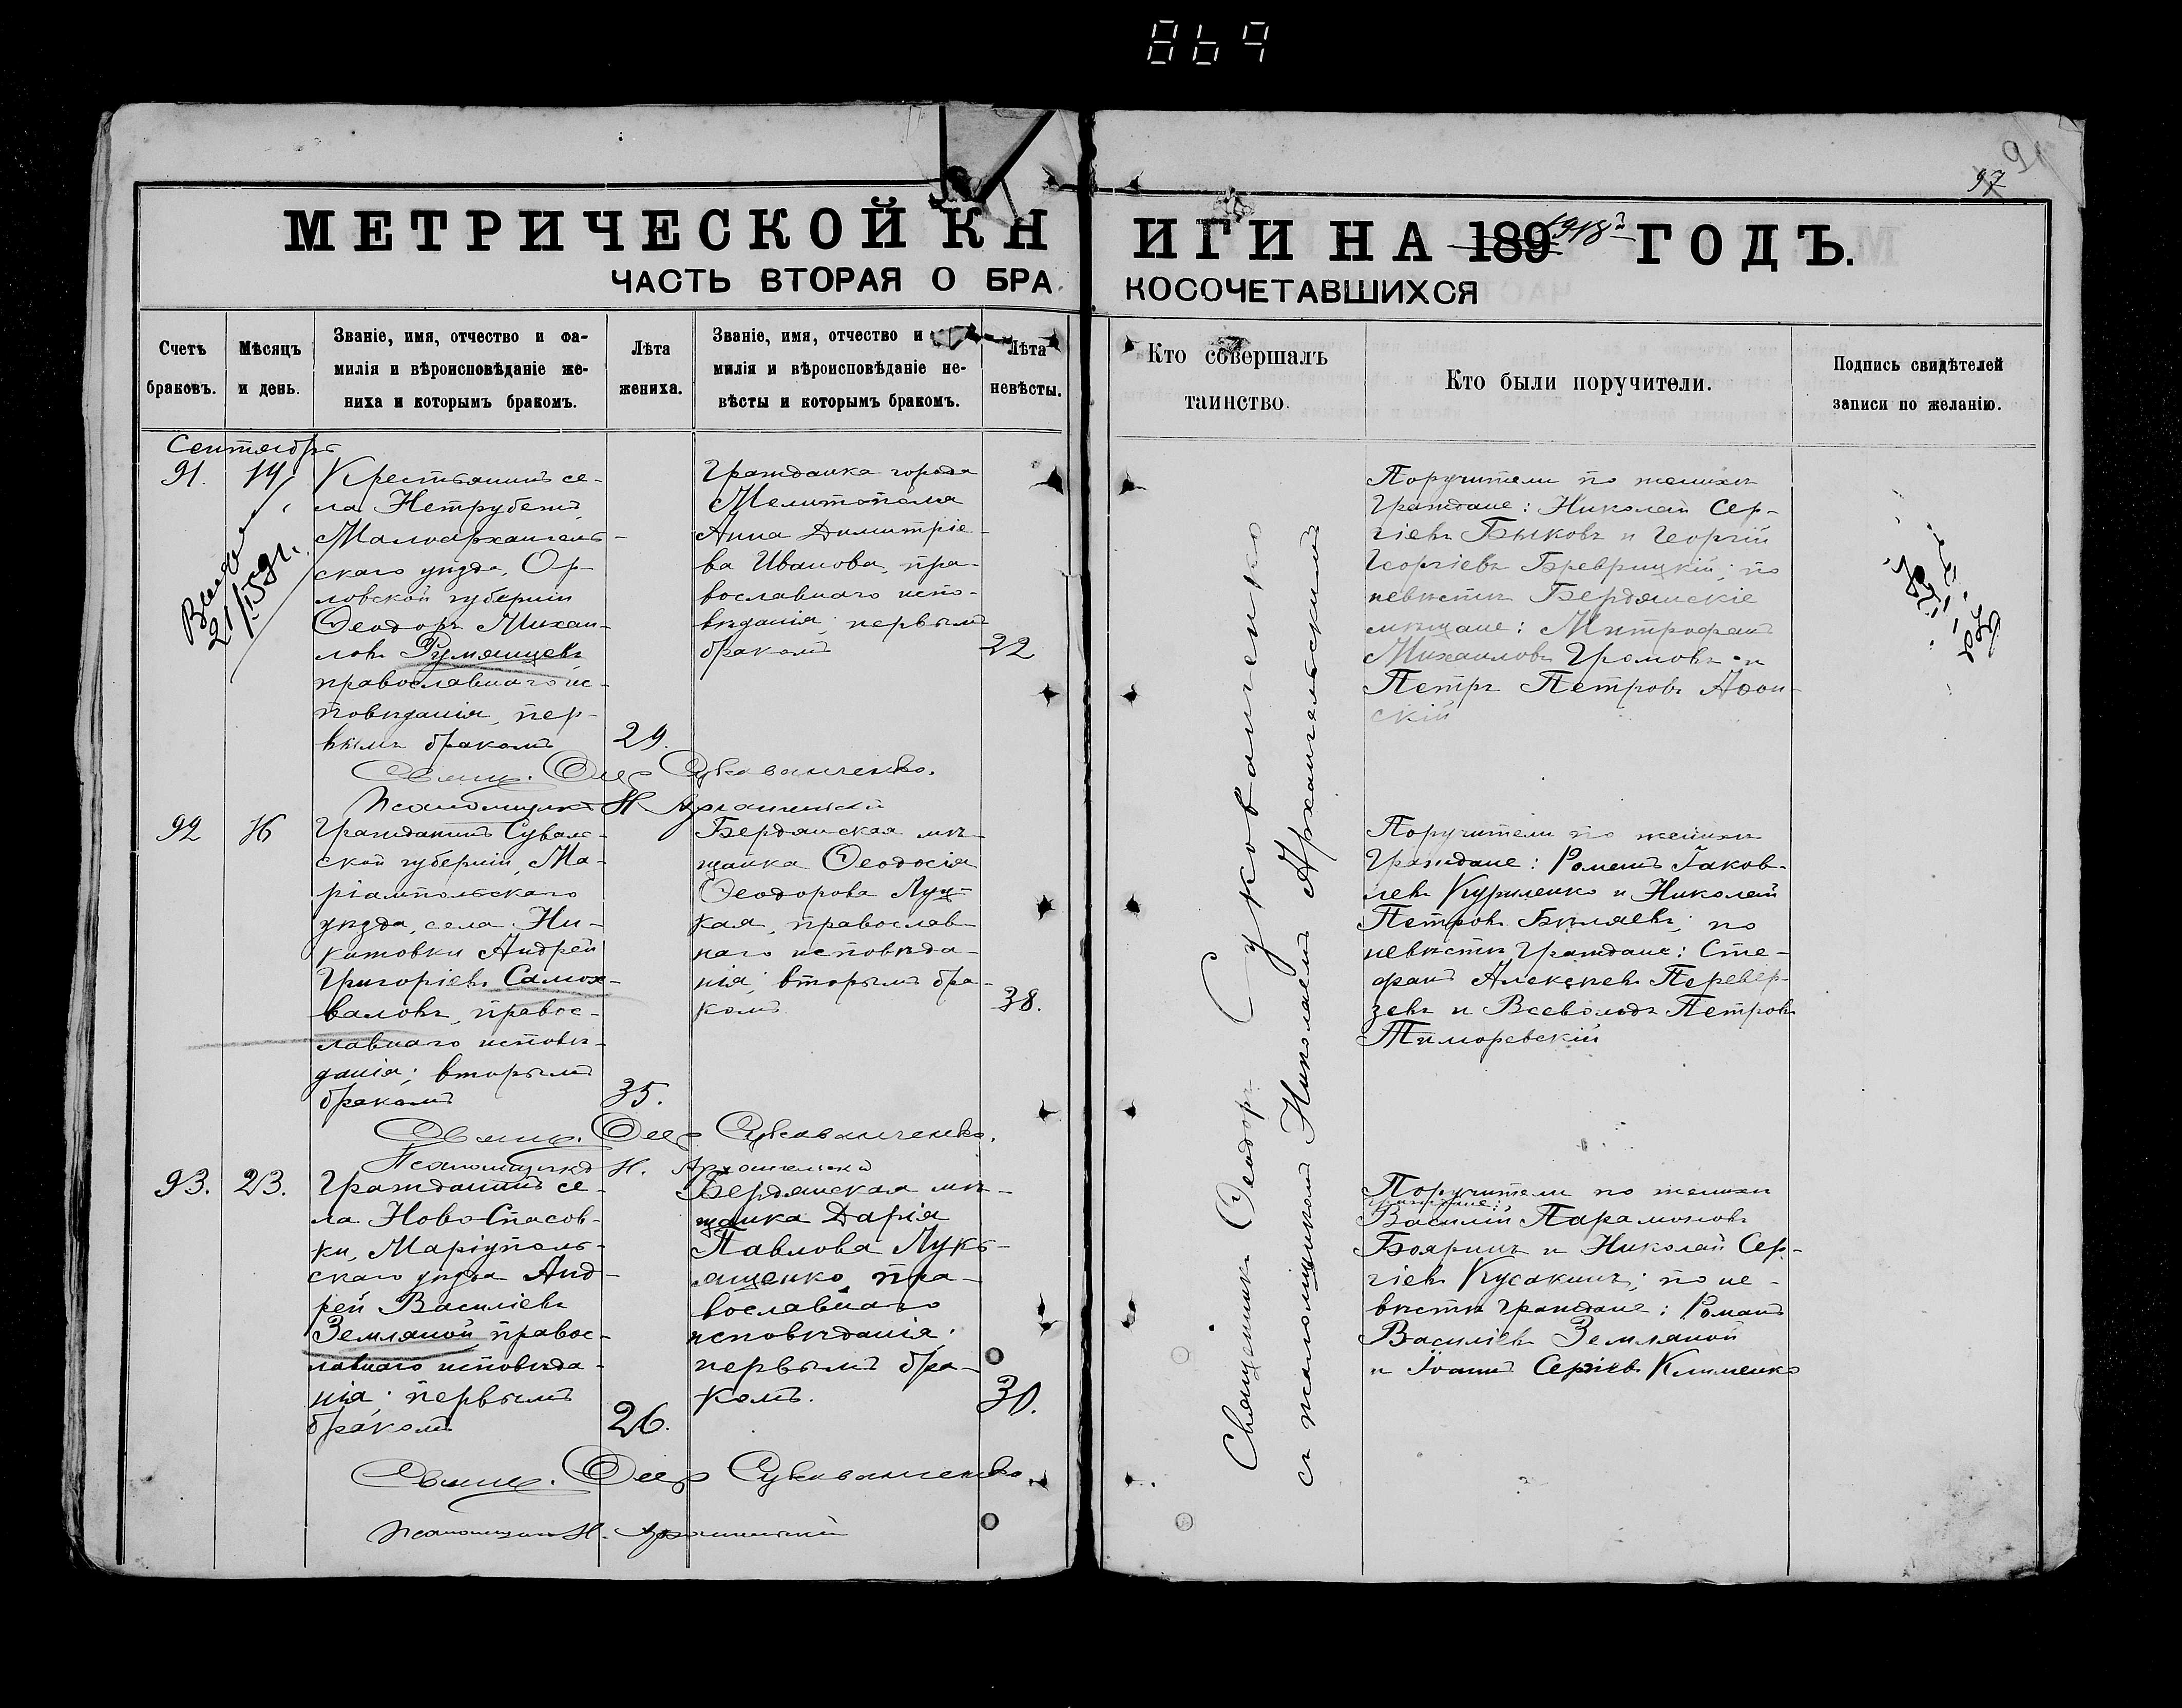 869
97
МЕТРИЧЕСКОЙ КНИГИ НА 189 1918й ГОДЪ.
ЧАСТЬ ВТОРАЯ О БРАКОСОЧЕТАВШИХСЯ
Счетъ браковъ.
Мѣсяцъ и день.
Званіе, имя, отчество и фа-
милія и вѣроисповѣданіе же-
ниха и которымъ бракомъ.
Лѣта жениха.
Званіе, имя, отчество и
милія и вѣроисповѣданіе не-
вѣсты и которымъ бракомъ.
Лѣта невѣсты.
Кто совершалъ
таинство.
Кто были поручители.
Подпись свидѣтелей
записи по желанію.
Сентябрь
91.
14
Крестьянинъ се-
ла Нетрубежъ
Малоархангель-
скаго уѣзда, Ор-
ловской губерніи
Ѳеодоръ Михаи-
ловъ Румянцевъ
православнаго ис-
повѣданія, пер-
вымъ бракомъ
29.
Гражданка города
Мелитополя
Анна Димитріе-
ва Иванова, пра-
вославнаго испо-
вѣданія; первымъ
бракомъ
22
Поручители по женихѣ
Граждане: Николай Сер-
гіевъ Быковъ и Георгій
Георгіевъ по
невѣстѣ Бердянскіе
мѣщане: Митрофанъ
Михаиловъ Громовъ и
Петръ Петровъ Аѳон-
скій
Свящ. Ѳеод. Сукованченко.
Псаломщикъ Н. Архангельскій
92
16
Гражданинъ Сувалк-
ской губерніи, Ма-
ріампольскаго
уѣзда, села Ни-
китовки Андрей
Григоріевъ Самох-
валовъ, правос-
лавнаго исповѣ-
данія; вторымъ
бракомъ
35.
Бердянская мѣ-
щанка Ѳеодосія
Ѳеодорова Луц-
кая, православ-
наго исповѣда-
нія; вторымъ бра-
комъ
38.
Поручители по женихѣ
Граждане: Романъ Іаков-
левъ Куриленко и Николай
Петровъ Бѣляевъ; по
невѣстѣ Граждане: Сте-
фанъ Алексѣевъ Перевер-
зевъ и Всеволодъ Петровъ
Свящ. Ѳеод. Сукованченко.
Псаломщикъ Н. Архангельскій
93.
23.
Гражданинъ се-
ла Ново Спасов-
ки, Маріуполь-
скаго уѣзда Анд-
рей Василіевъ
Земляной правос-
лавнаго исповѣда-
нія; первымъ
бракомъ
26.
Бердянская мѣ-
щанка Дарія
Павлова Лукь-
ященко, пра-
вославнаго
исповѣданія;
первымъ бра-
комъ.
30.
Поручители по женихѣ
граждане:
Василій Парамоновъ
Бояринъ и Николай Сер-
гіевъ Кусакинъ; по не-
вѣстѣ граждане: Романъ
Василіевъ Земляной
и Іоаннъ Сергіевъ Клименко
Свящ. Ѳеод. Сукованченко.
Псаломщикъ Н. Архангельскій
Священникъ Ѳеодоръ Сукованченко
съ псаломщикомъ Николаемъ Архангельскимъ